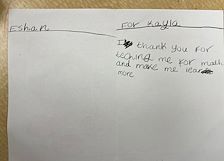 Eshan
For Kayla
thank you for
teching me for math
and make me lear
more